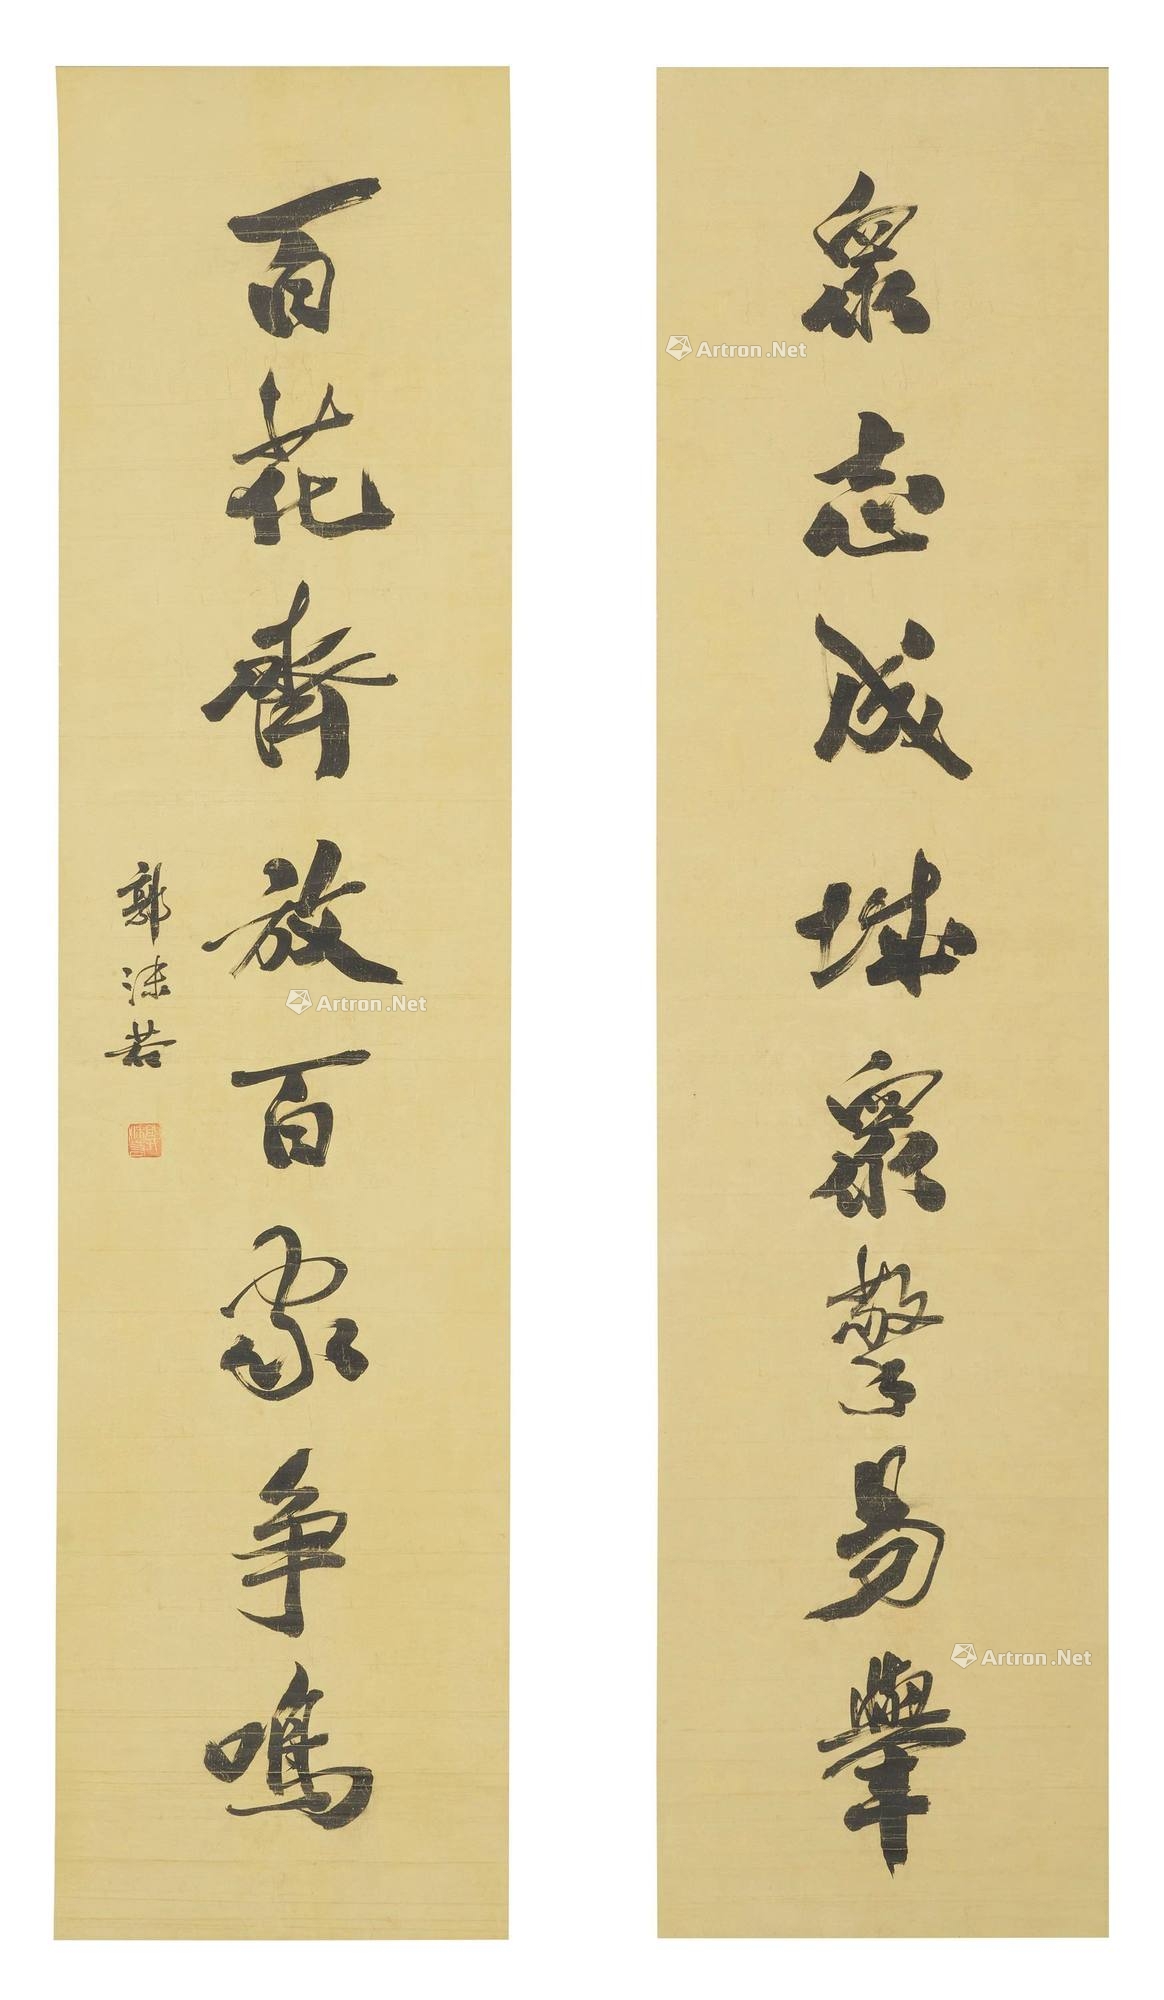 眾志成城眾擎易舉
百花齊放百家争鳴
郭沫若
Artron.Net
Artron.Net
Artron.Net